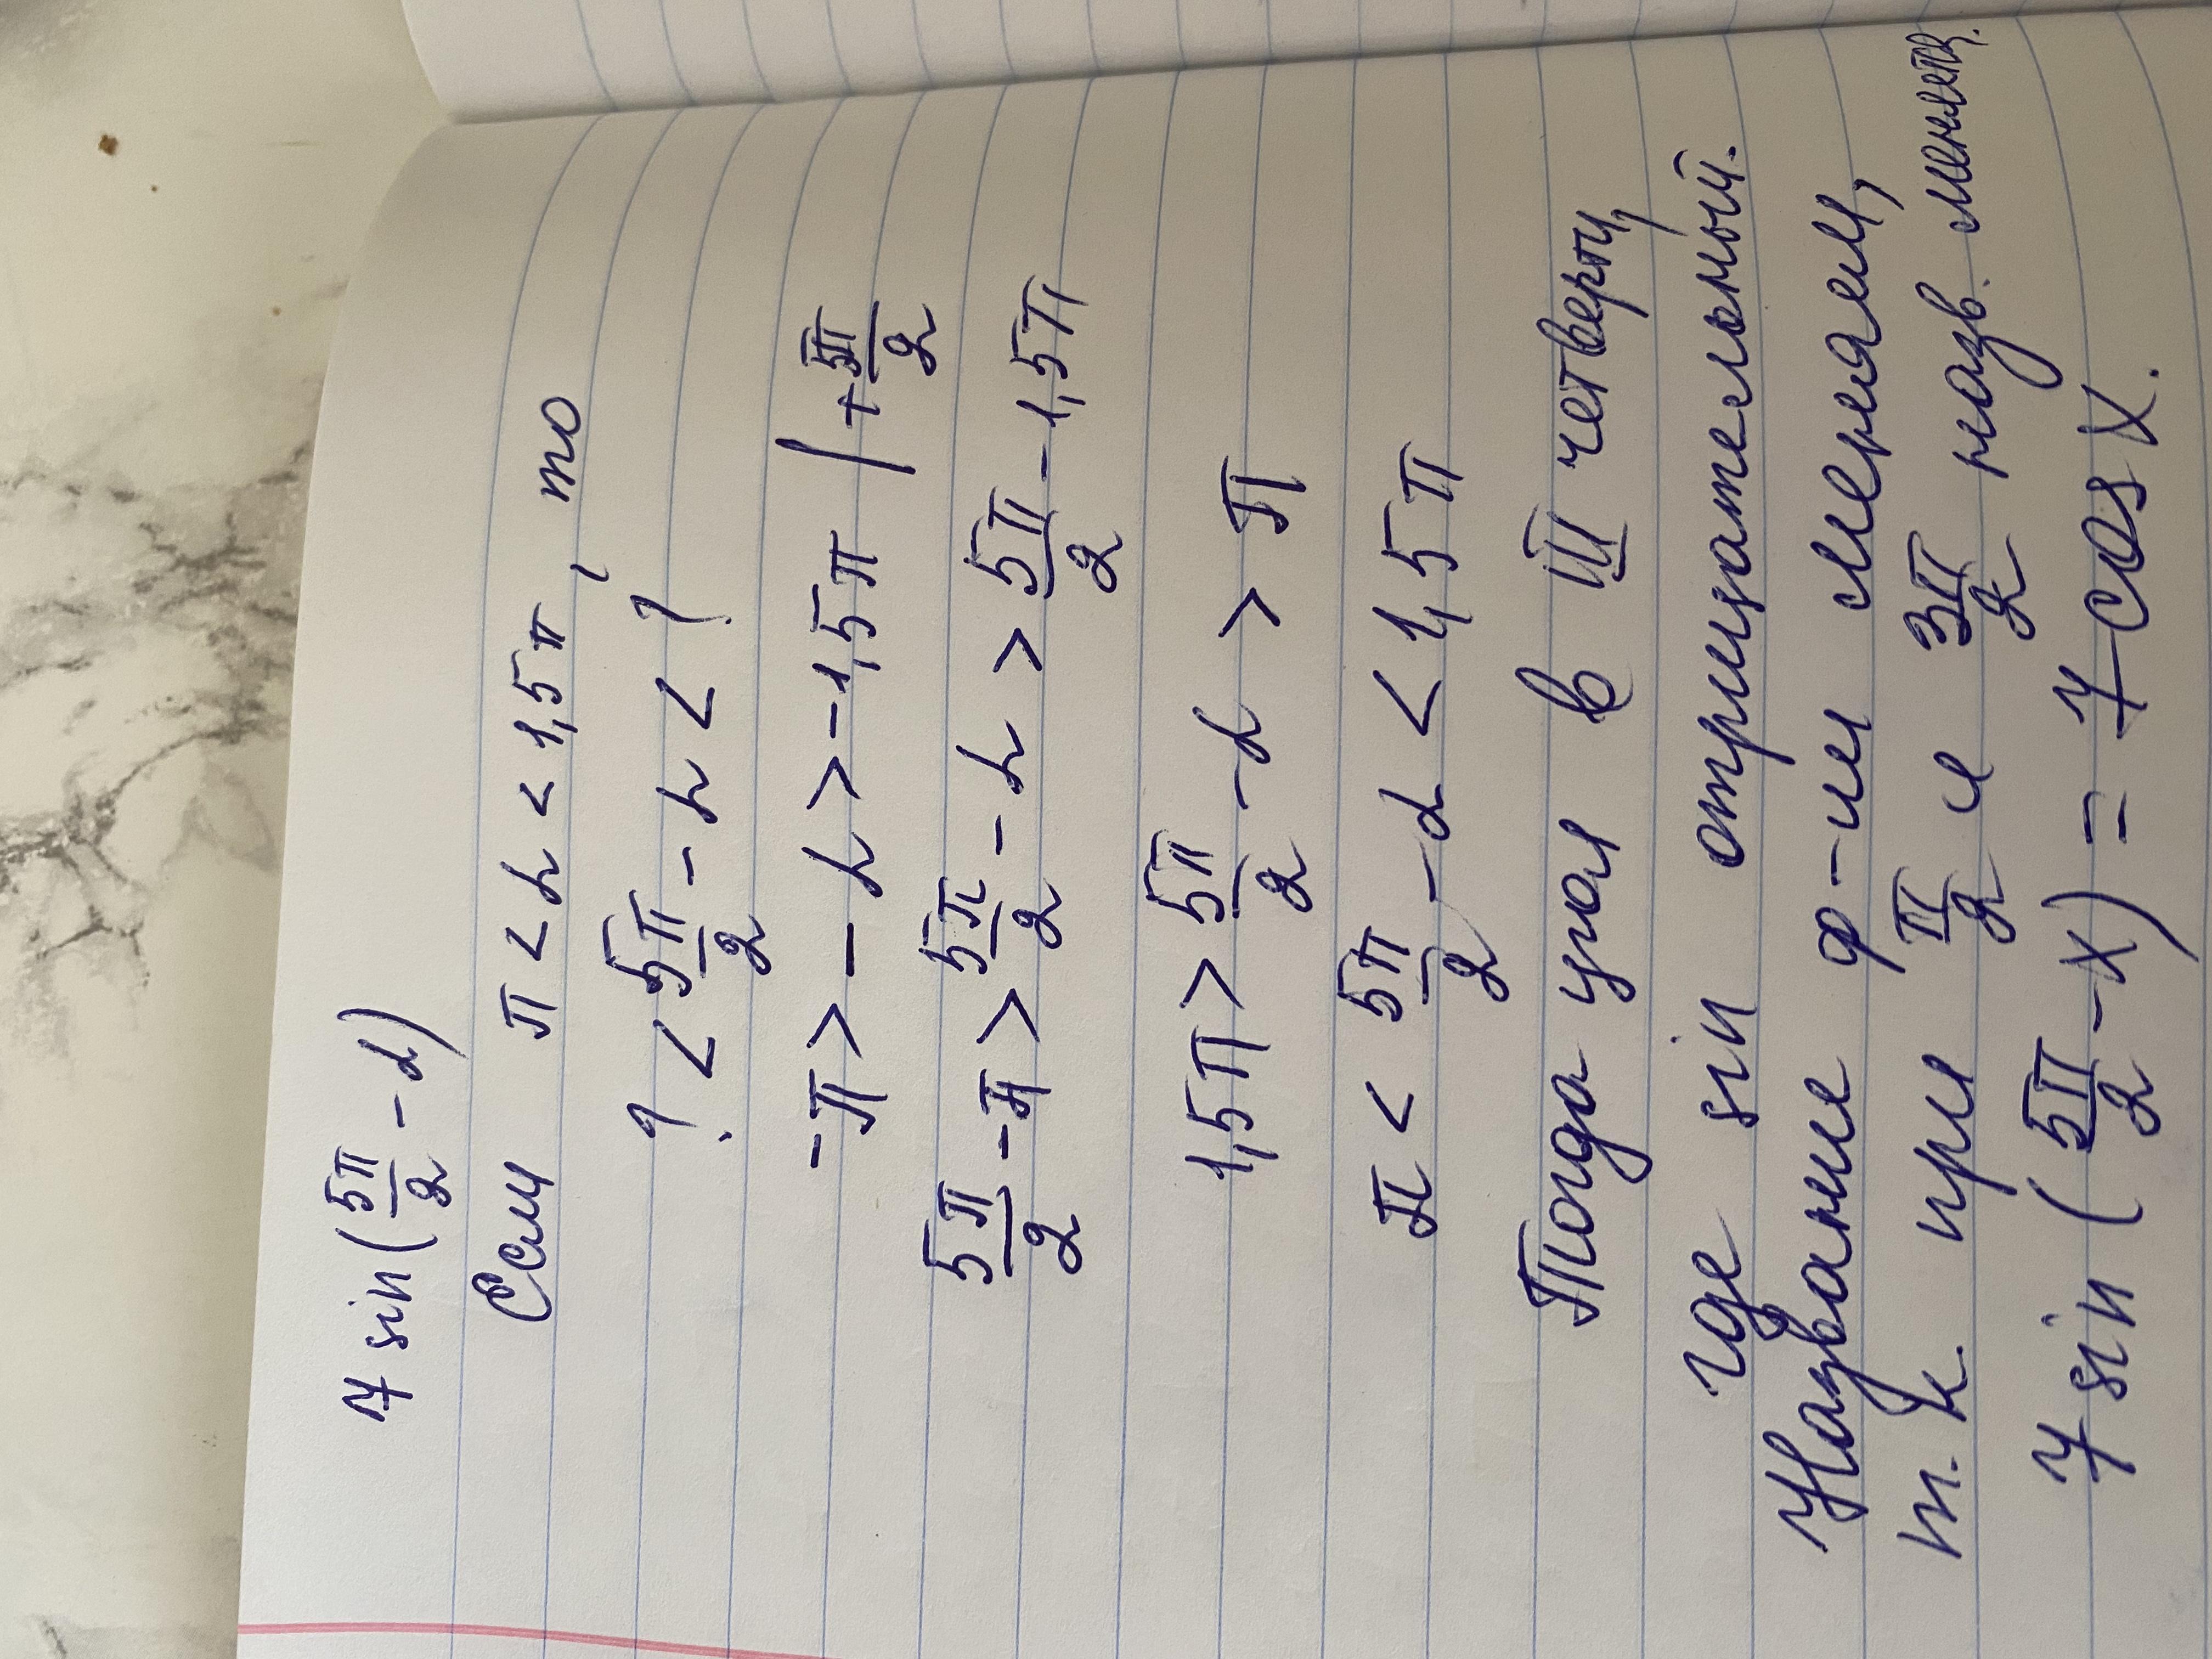 7 sin(5π/2 - α)
Если π < α < 1,5π, то
? < 5π/2 - α < ?
-π > -α > -1,5π | + 5π/2
5π/2 - π > 5π/2 - α > 5π/2 - 1,5π
1,5π > 5π/2 - α > π
π < 5π/2 - α < 1,5π
Тогда угол в III четверти,
где sin отрицательный.
Название ф-ии меняем,
т.к. при π/2 и 3π/2 назв. меняется.
7 sin (5π/2 - x) = 7 cos x.